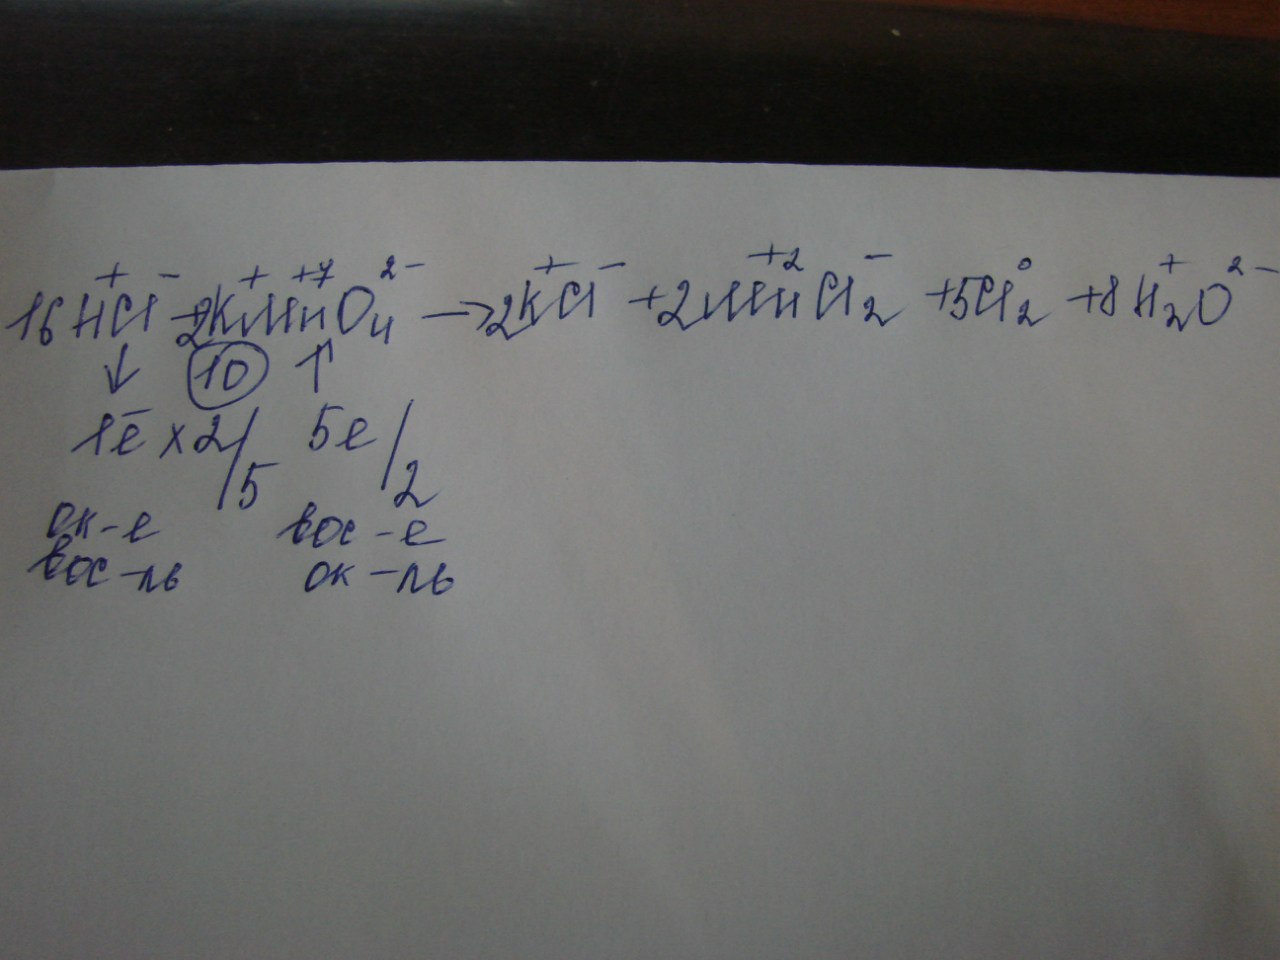 + − + +7 2− + − +2 − 0 + 2−
16HCl + 2KMnO4 → 2KCl + 2MnCl2 + 5Cl2 + 8H2O
↓ 10 ↑
1e̅ x 2/5 5e/2
ок-е вос-е
вос-ль ок-ль